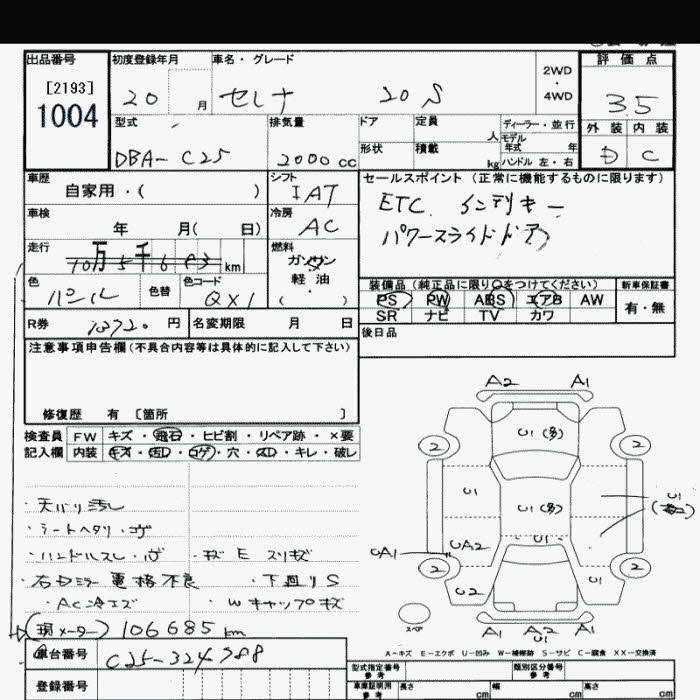 出品番号 初度登録年月 車名・グレード 評価点
[2193]
1004
20 月 セレナ 20S 2WD・4WD 3.5
型式 排気量 ドア 定員 人 ディーラー・並行 外装 内装
モデル年式 年
DBA-C25 2000cc 形状 積載 kg ハンドル 左・右 D C
車歴 シフト セールスポイント(正常に機能するものに限ります)
自家用・( ) IAT ETC インテリキー
車検 冷房
年 月( 日) AC パワースライドドア
走行 燃料
10万5千683km ガソリン
軽油
・
( )
色 色替 色コード 装備品(純正品に限り○をつけてください) 新車保証書
パール QX1 PS PW ABS エアB AW 有・無
SR ナビ TV カワ
R券 10720円 名変期限 月 日 後日品
注意事項申告欄(不具合内容等は具体的に記入して下さい)
修復歴 有 〔箇所 〕
検査員 FW キズ・飛石・ヒビ割・リペア跡・×要
記入欄 内装 キズ・汚れ・コゲ・穴・スレ・キレ・破レ
・天バリ汚レ
・シートヘタリ・コゲ
・ハンドルスレ・キズ ・キズ E スリキズ
・右ドミラー電格不良 ・下廻りS
・AC冷エズ ・Wキャップキズ
(現メーター) 106685km
車台番号 C25-324788
登録番号
A2 A1
U1(多)
2 2
U1 U1(多) U1
U1
UA1 UA2
2 2
U2 U1
スペア
A1 A2 A1
U1
A-キズ E-エクボ U-凹み W-補修跡 S-サビ C-腐食 XX-交換済
型式指定番号 参考 類別区分番号 参考
車庫証明用 参考 長さ cm 幅 cm 高さ cm